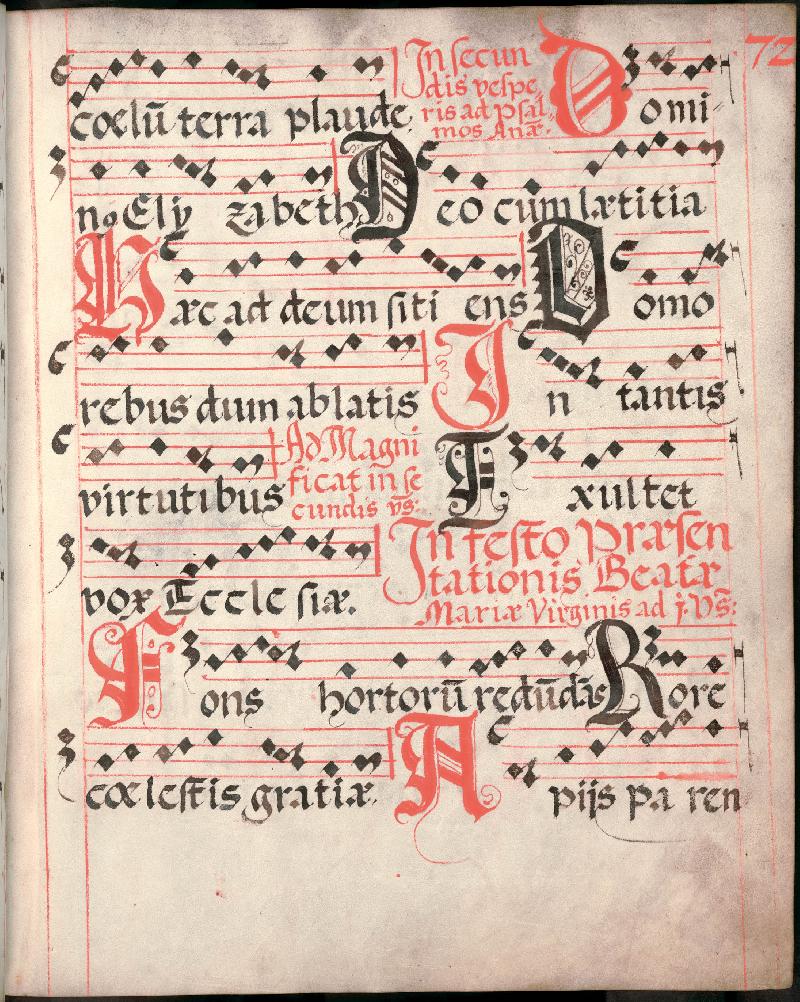 72
coelū terra plaude.
In secun
dis vespe
ris ad psal
mos Anæ.
Domi
no Ely zabeth Deo cum lætitia
Hæc ad deum siti ens Domo
rebus dum ablatis In tantis
virtutibus
Ad Magni
ficat in se
cundis vs̄:
Exultet
vox Eccle siæ.
In festo Præsen
tationis Beatæ
Mariæ Virginis ad j. Vs̄:
Fons hortorū redūdās Rore
cœlestis gratiæ. A pijs pa ren